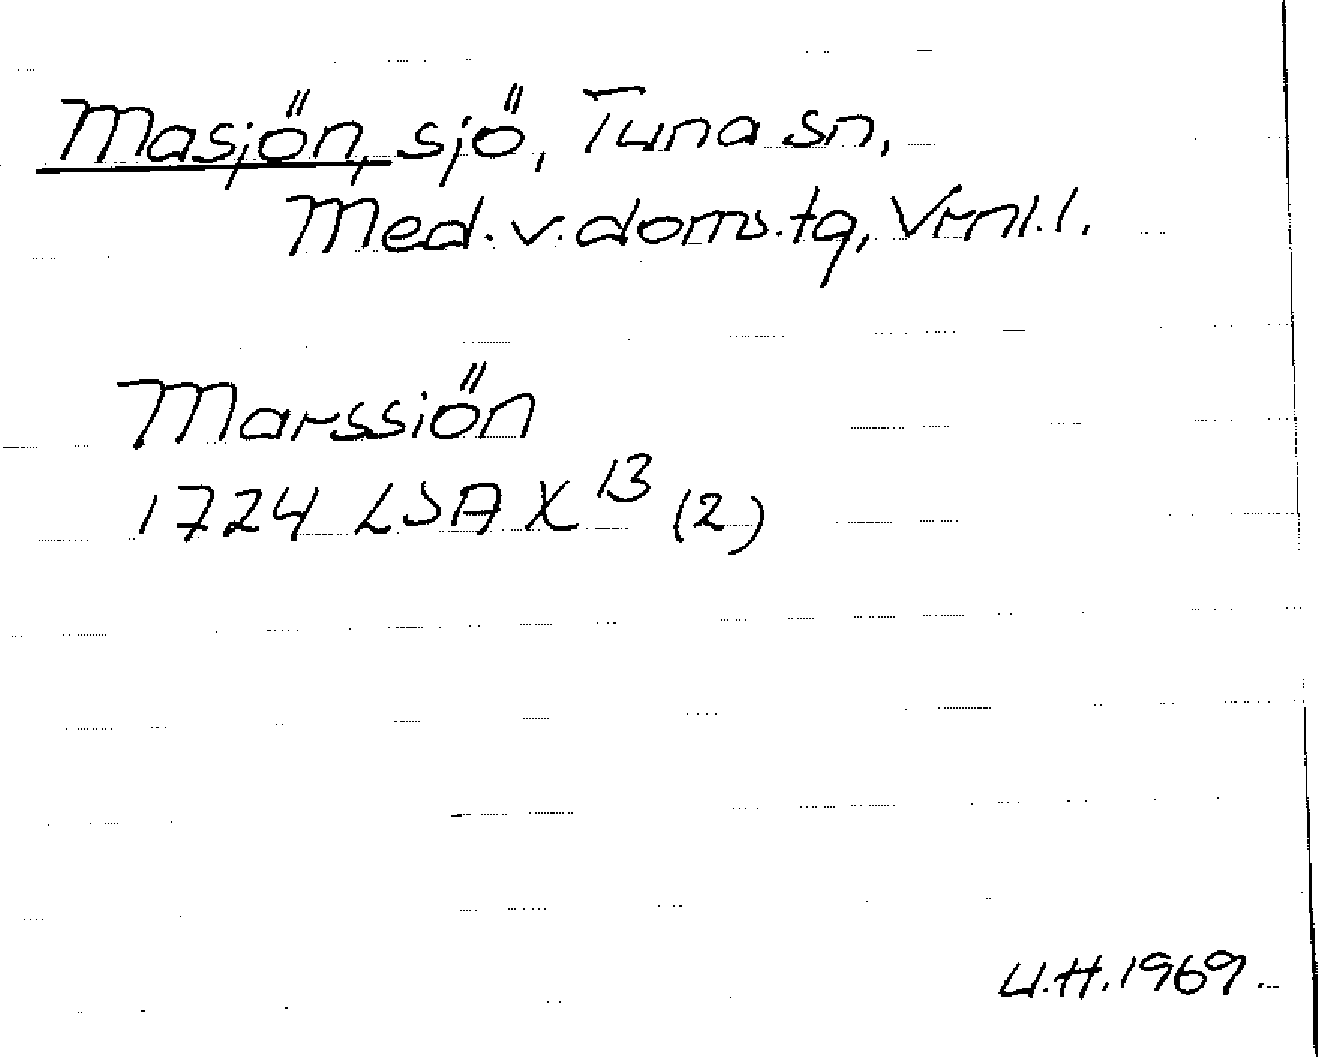 Masjön, sjö, Tuna sn,
Med. v. doms. tg, Vrnl. l.
Marssiön
1724 LSA X 13 (2)
U.H. 1969.